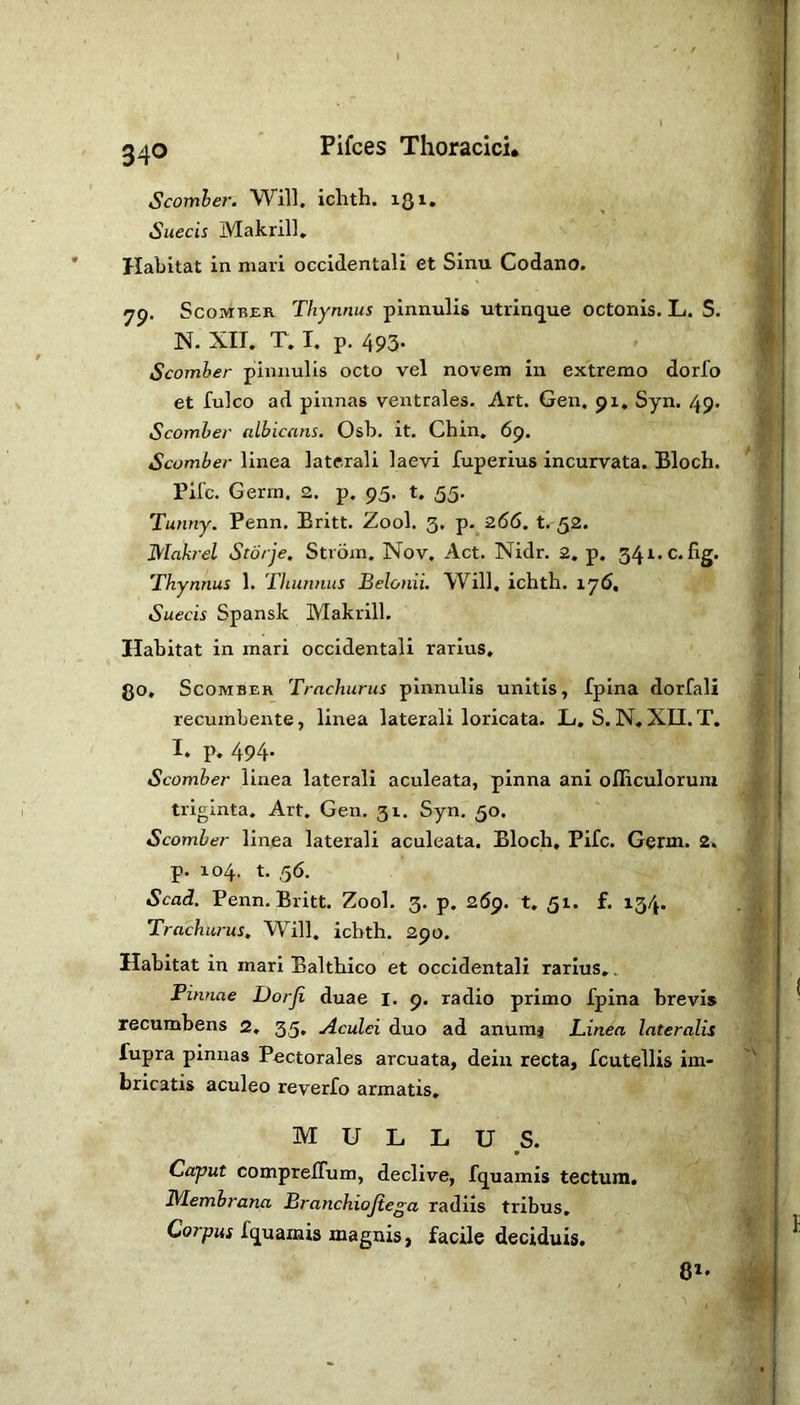 340 Piſces Thoracici.
Scomber. Will. ichth. 181.
Suecis Makrill.
Habitat in mari occidentali et Sinu Codano.
79. Scomber Thynnus pinnulis utrinque octonis. L. S.
N. XII. T. I. p. 493.
Scomber pinnulis octo vel novem in extremo dorſo
et ſulco ad pinnas ventrales. Art. Gen. 91. Syn. 49.
Scomber albicans. Osb. it. Chin. 69.
Scomber linea laterali laevi ſuperius incurvata. Bloch.
Piſc. Germ. 2. p. 95. t. 55.
Tunny. Penn. Britt. Zool. 3. p. 266. t. 52.
Makrel Störje. Ström. Nov. Act. Nidr. 2. p. 341. c. fig.
Thynnus l. Thunnus Belonii. Will. ichth. 176.
Suecis Spansk Makrill.
Habitat in mari occidentali rarius.
80. Scomber Trachurus pinnulis unitis, ſpina dorſali
recumbente, linea laterali loricata. L. S. N. XII. T.
I. p. 494.
Scomber linea laterali aculeata, pinna ani oſſiculorum
triginta. Art. Gen. 31. Syn. 50.
Scomber linea laterali aculeata. Bloch. Piſc. Germ. 2.
p. 104. t. 56.
Scad. Penn. Britt. Zool. 3. p. 269. t. 51. f. 134.
Trachurus. Will. ichth. 290.
Habitat in mari Balthico et occidentali rarius.
Pinnae Dorſi duae 1. 9. radio primo ſpina brevis
recumbens 2. 35. Aculei duo ad anum; Linea lateralis
ſupra pinnas Pectorales arcuata, dein recta, ſcutellis im-
bricatis aculeo reverſo armatis.
MULLUS.
Caput compreſſum, declive, ſquamis tectum.
Membrana Branchioſtega radiis tribus.
Corpus ſquamis magnis, facile deciduis.
81.